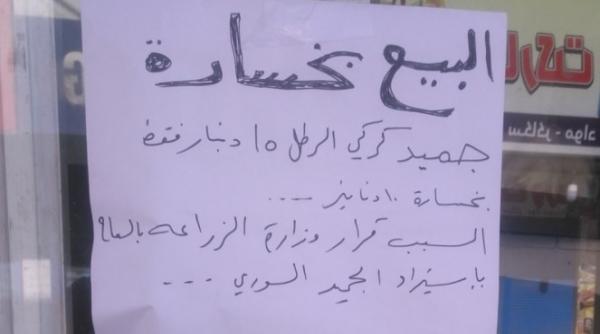 البيع بخسارة
جميد كركي الرطل ١٥ دينار فقط
بخسارة ١٠ دنانير ....
السبب قرار وزارة الزراعه بالسماح
بإستيراد الجميد السوري ...